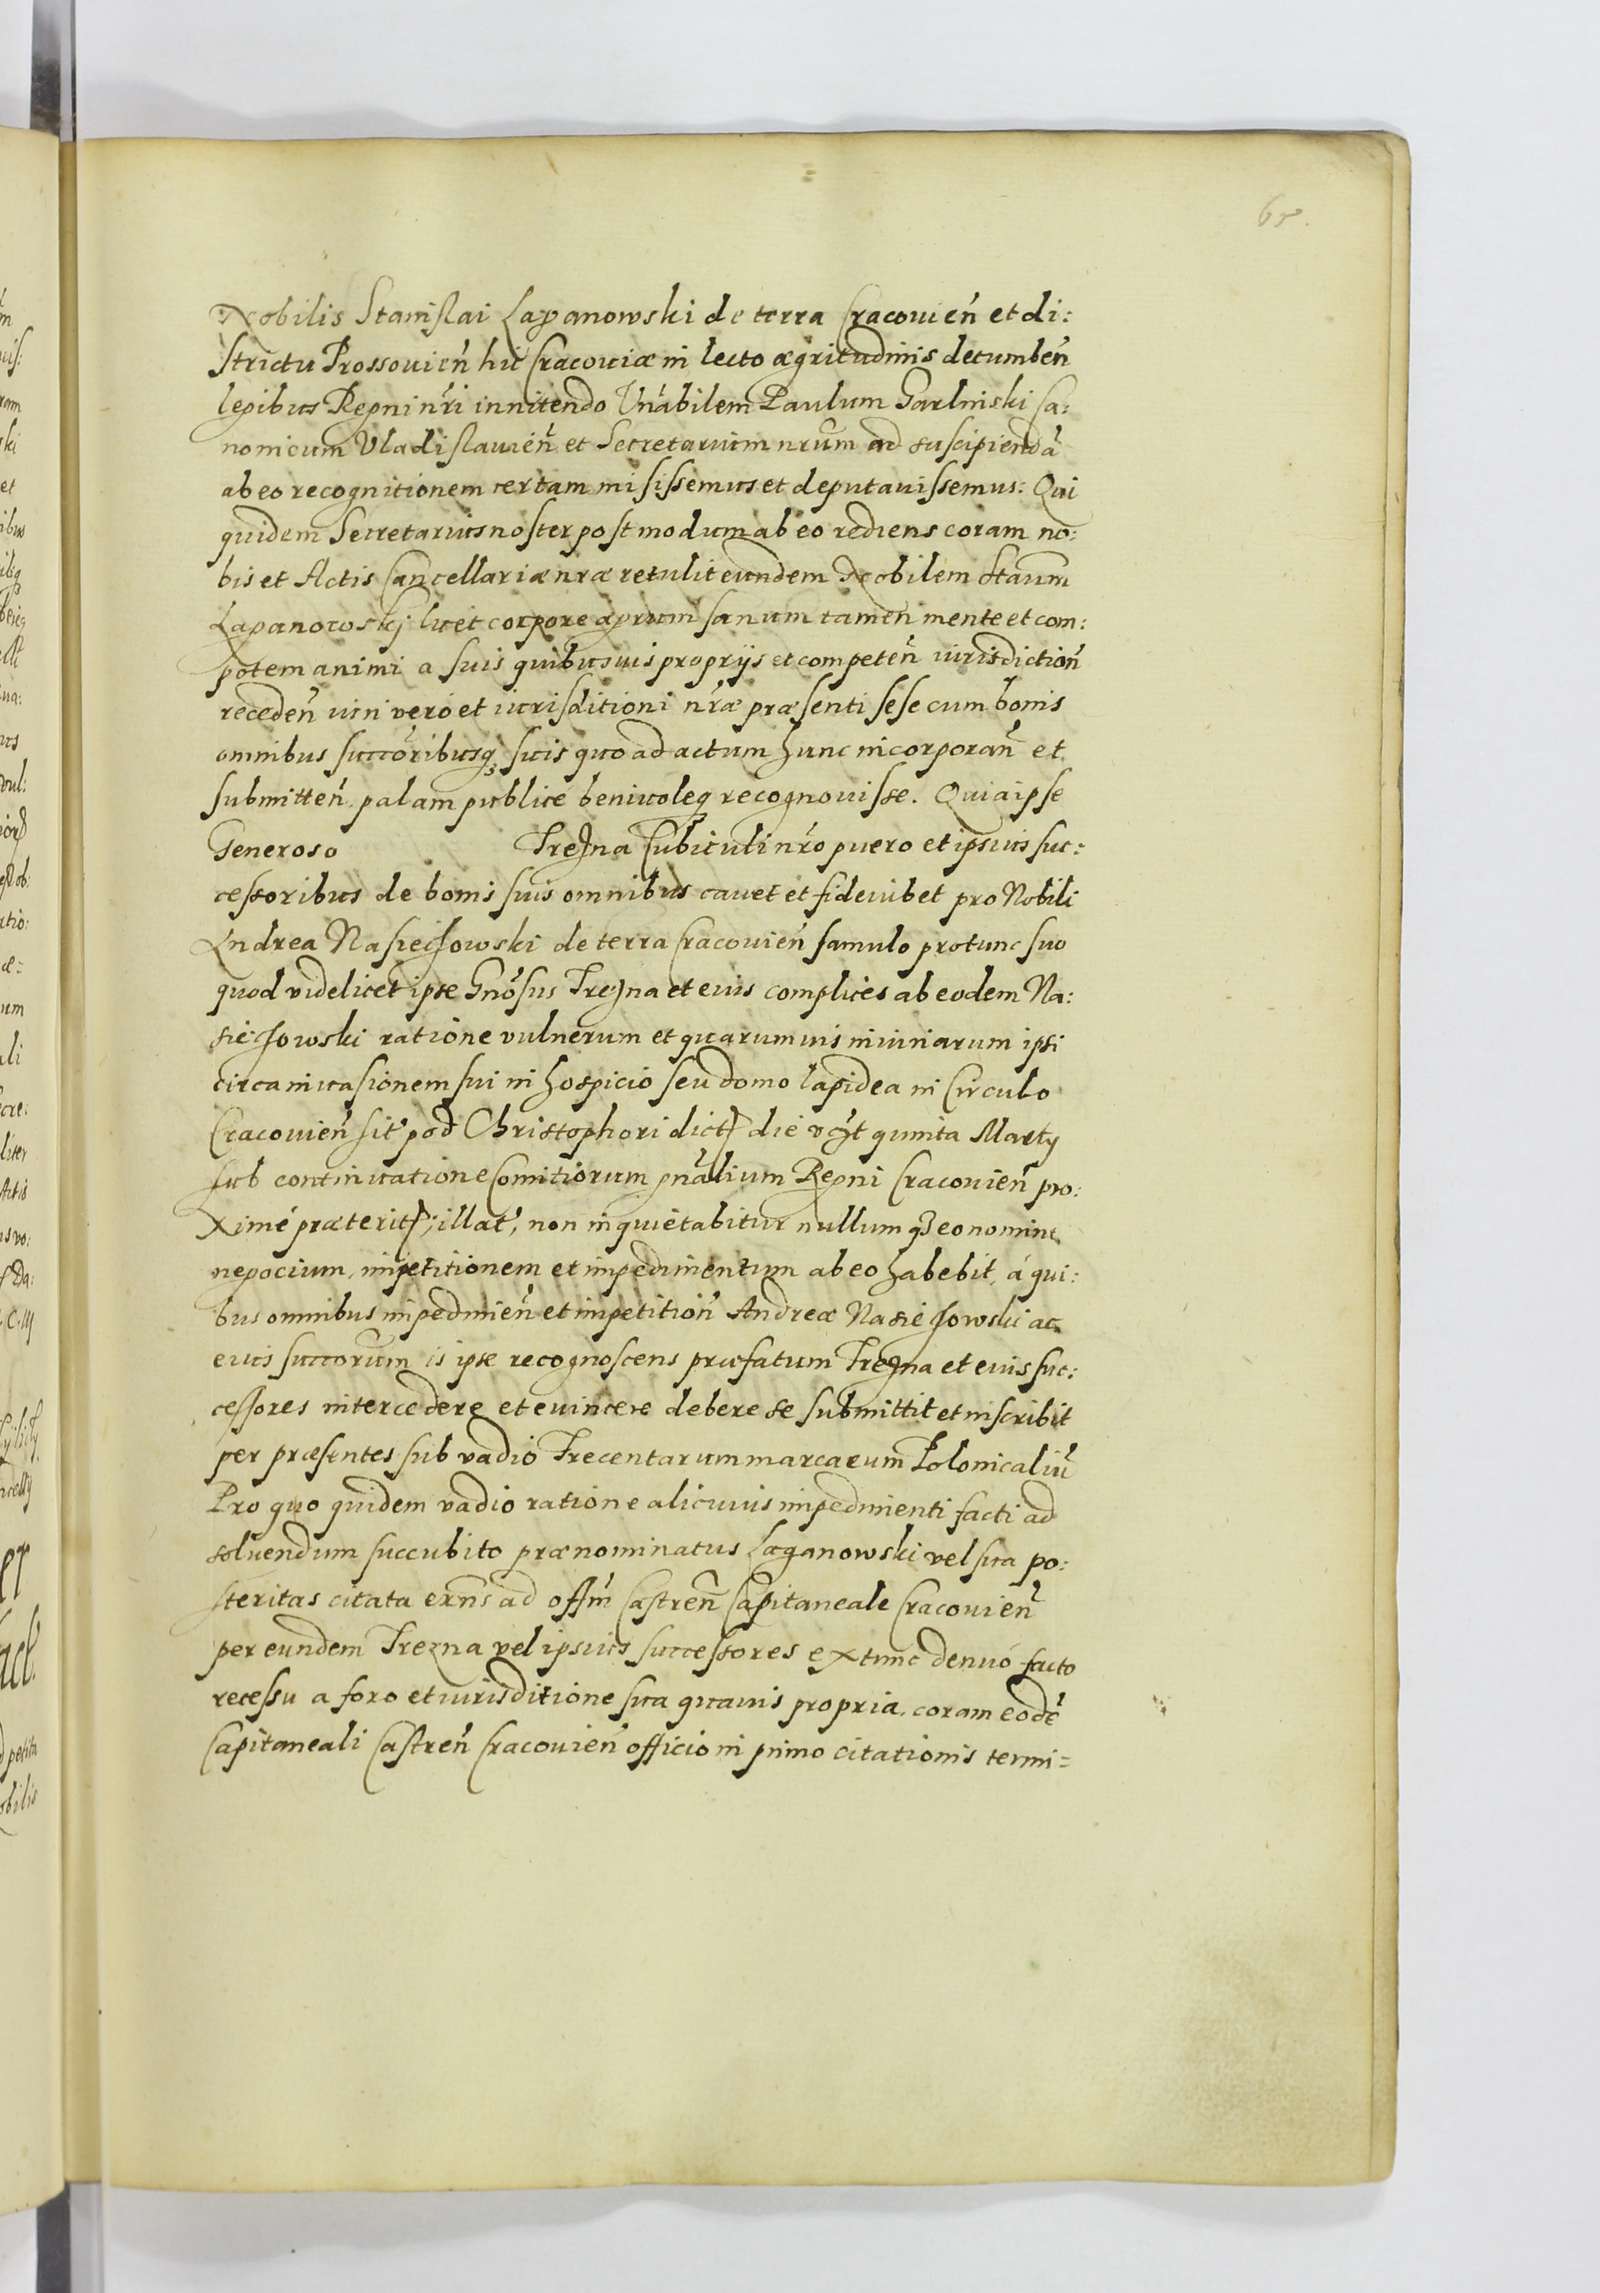 65.
Nobilis Stanislai Lapanowski de terra Cracouien̄ et di:
strictu Prossouien̄ hic Cracouiæ in lecto ægritudinis decumben̄
legibus Regni nr̄i innitendo Vn̄abilem Paulum Garlinski Ca:
nonicum Vladislauien̄ et Secretarium nrūm ad suscipiendā
ab eo recognitionem certam misissemus et deputauissemus: Qui
quidem Secretarius noster postmodum ab eo rediens coram no:
bis et Actis Cancellariæ nræ retulit eundem Nobilem Staūm
Lapanowskj licet corpore ægrum sanum tamen mente et com:
potem animi a suis quibusuis proprijs et competen̄ iurisdiction̄
receden̄ imi vero et iurisditioni nr̄æ præsenti sese cum bonis
omnibus succōribusq suis quo ad actum hunc incorporan̄ et
submitten̄ palam publicé beniuoleq recognouisse. Quia ipse
Generoso Trezna Cubiculi nr̄o puero et ipsius suc:
cessoribus de bonis suis omnibus cauet et fideiubet pro Nobili
Andrea Nasiechowski de terra Cracouien̄ famulo protunc suo
quod videlicet ipse Gnōsus Trezna et eius complices ab eodem Na:
siechowski ratione vulnerum et quarumuis iniuriarum ipsi
circa inuasionem sui in hospicio seu domo lapidea in Circulo
Cracouien̄ sit' pod Christophori dict die vgt quinta Martij
sub continuatione Comitiorum gnālium Regni Cracouien̄ pro:
ximé præterit, illat', non inquietabitur nullumq eo nomine
negocium, impetitionem et impedimentum ab eo habebit, á qui:
bus omnibus impedimen̄ et impetition̄ Andreæ Nasiechowski ac
eius succorūm is ipse recognoscens præfatum Trezna et eius suc:
cessores intercedere et euincere debere se submittit et inscribit
per præsentes sub vadio Trecentarum marcarum Polonicaliū
Pro quo quidem vadio ratione alicuius impedimenti facti ad
soluendum succubito prænominatus Lapanowski vel sua po:
steritas citata exn̄s ad offm̄ Castren̄ Capitaneale Cracouien̄
per eundem Trezna vel ipsius successores extunc denuó facto
recessu a foro et iurisditione sua quauis propria, coram eodē
Capitaneali Castren̄ Cracouien̄ officio in primo citationis termi=